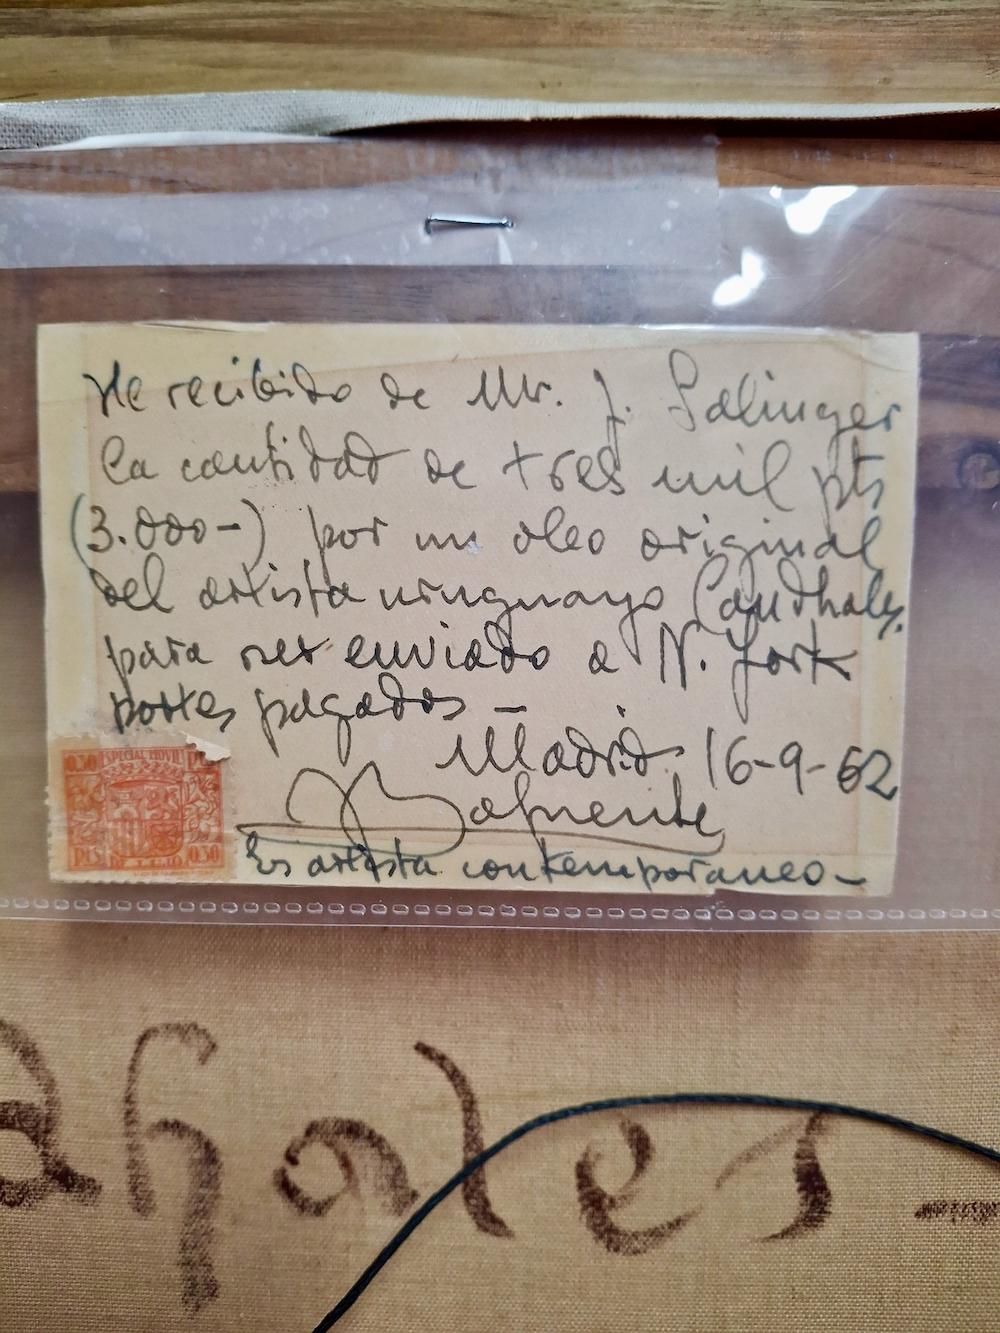 He recibido de Mr. J. Salinger
la cantidad de tres mil pts
(3.000-) por un oleo original
del artista uruguayo Candhales.
para ser enviado a N. York
portes pagados -
Madrid 16-9-62
Lafuente
Es artista contemporaneo -
0,50 ESPECIAL MOVIL
PTS 0,50
ahales -